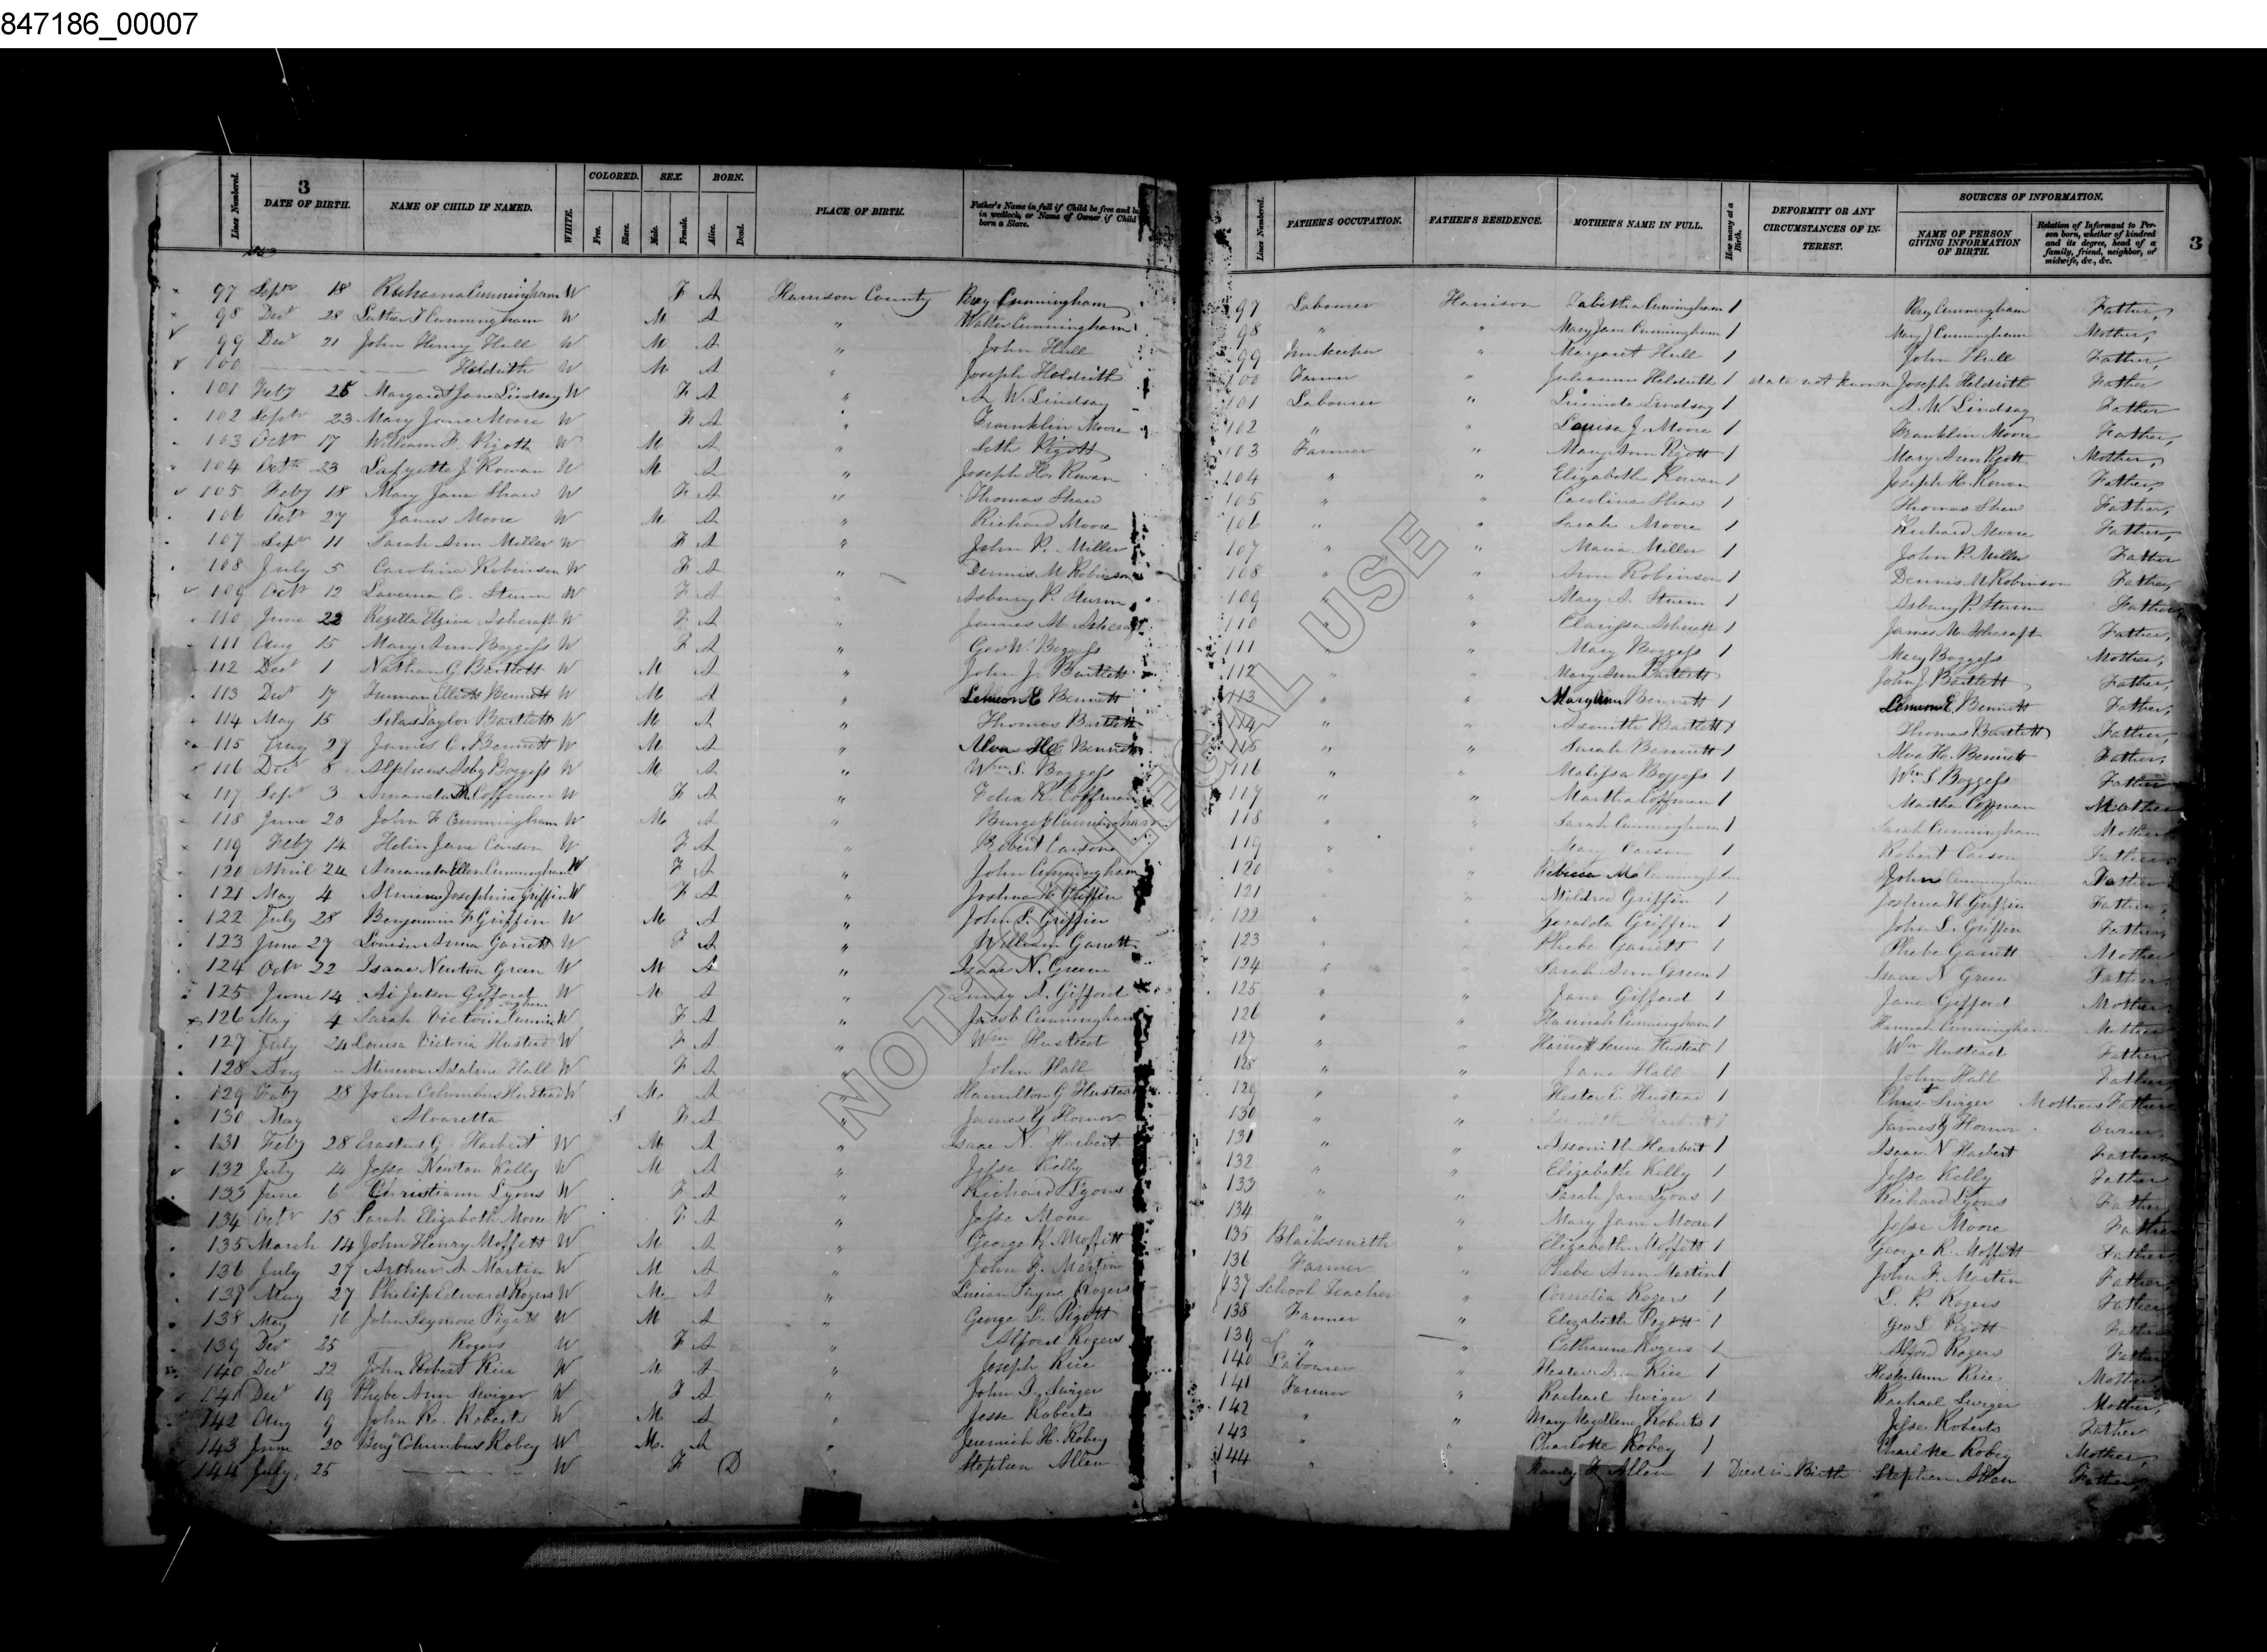 847186_00007
3
Lines Numbered.
DATE OF BIRTH.
NAME OF CHILD IF NAMED.
WHITE.
COLORED.
Free.
Slave.
SEX.
Male.
Female.
BORN.
Alive.
Dead.
PLACE OF BIRTH.
Father's Name in full if Child be free and be in wedlock, or Name of Owner if Child born a Slave.
97 Sept 18 Cunningham W F A Harrison County Cunningham
98 Decr 28 Luther Cunningham W M A " Walter Cunningham
99 Decr 21 John Henry Hull W M A " John Hull
100 — Holdrith W M A " Joseph Holdrith
101 Feby 25 Margaret Jane Lindsay W F A " A W. Lindsay
102 Septr 23 Mary Jane Moore W F A " Franklin Moore
103 Octr 17 William F. Pigott W M A " Seth Pigott
104 Octr 23 Lafyette J Rowan W M A " Joseph H. Rowan
105 Feby 18 Mary Jane Shaw W F A " Thomas Shaw
106 Octr 27 James Moore W M A " Richard Moore
107 Sept 11 Sarah Ann Miller W F A " John P. Miller
108 July 5 Caroline Robinson W F A " Dennis M Robinson
109 Octr 12 Laverna C. Sturm W F A " Asbury P. Sturm
110 June 22 Ashcraft W F A " James M Ashcraft
111 Aug 15 Mary Ann Boggess W F A " Geo W. Boggess
112 Decr 1 Nathan G. Bartlett W M A " John J. Bartlett
113 Decr 17 Truman Elliott Bennett W M A " Lemeon E Bennett
114 May 15 Silas Taylor Bartlett W M A " Thomas Bartlett
115 27 James C. Bennett W M A " Alva H Bennett
116 Decr 8 Alpheus Asby Boggess W M A " Wm S. Boggess
117 Sept 3 Amanda Coffman W F A " Felix R. Coffman
118 June 20 John F Cunningham W M A " Burgess Cunningham
119 Feby 14 Helin Jane Carson W F A " Robert Carson
120 April 24 Amanda Ellen Cunningham W F A " John Cunningham
121 May 4 Josephine Griffin W F A " Joshua H Griffin
122 July 28 Benjamin F Griffin W M A " John S. Griffin
123 June 27 Anna Garrett W F A " William Garrett
124 Octr 22 Isaac Newton Green W M A " Isaac N. Greene
125 June 14 Ai Judson Gifford W M A " A. Gifford
126 May 4 Sarah Victoria Cunningham W F A " Jacob Cunningham
127 July 24 Louisa Victoria Hustead W F A " Wm Hustead
128 Aug — Minerva Adaline Hall W F A " John Hall
129 Feby 28 John Columbus Hustead W M A " Hamilton G Hustead
130 May Alvaretta S F A " James Y Homor
131 Feby 28 Erastus G. Harbert W M A " Isaac N. Harbert
132 July 14 Jesse Newton Kelly W M A " Jesse Kelly
133 June 6 Christiann Lyons W F A " Richard Lyons
134 Octr 15 Sarah Elizabeth Moore W F A " Jesse Moore
135 March 14 John Henry Moffett W M A " George R Moffett
136 July 27 Arthur A Martin W M A " John F. Martin
137 May 27 Philip Edward Rogers W M A " Lucian Payne Rogers
138 May 16 John Seymore Pigott W M A " George L. Pigott
139 Decr 25 — Rogers W F A " Alford Rogers
140 Decr 22 John Robert Rice W M A " Joseph Rice
141 Decr 19 Phebe Ann Swiger W F A " John Swiger
142 Aug 9 John R. Roberts W M A " Jesse Roberts
143 June 20 Benj Columbus Robey W M. A " Jeremiah H. Robey
144 July 25 — W F D " Stephen Allen
Lines Numbered.
FATHER'S OCCUPATION.
FATHER'S RESIDENCE.
MOTHER'S NAME IN FULL.
How many at a Birth.
DEFORMITY OR ANY CIRCUMSTANCES OF INTEREST.
SOURCES OF INFORMATION.
NAME OF PERSON GIVING INFORMATION OF BIRTH.
Relation of Informant to Person born, whether of kindred and its degree, head of a family, friend, neighbor, or midwife, &c., &c.
3
97 Labourer Harrison Tabitha Cunningham 1 Cunningham Father,
98 " " Mary Jane Cunningham 1 Mary J Cunningham Mother,
99 Innkeeper " Margaret Hull 1 John Hull Father,
100 Farmer " Holdrith 1 date not known Joseph Holdrith Father
101 Labourer " Lucinda Lindsay 1 A. W. Lindsay Father
102 " " Louisa J. Moore 1 Franklin Moore Father,
103 Farmer " Mary Ann Pigott 1 Mary Ann Pigott Mother,
104 " " Elizabeth Rowan 1 Joseph H. Rowan Father,
105 " " Caroline Shaw 1 Thomas Shaw Father,
106 " " Sarah Moore 1 Richard Moore Father,
107 " " Maria Miller 1 John P. Miller Father
108 " " Ann Robinson 1 Dennis M Robinson Father,
109 " " Mary A. Sturm 1 Asbury P. Sturm Father
110 " " Clarissa Ashcraft 1 James M. Ashcraft Father,
111 " " Mary Boggess 1 Mary Boggess Mother,
112 " " Mary Ann Bartlett John J. Bartlett Father,
113 " " Mary Ann Bennett 1 Lemeon E. Bennett Father,
114 " " Bartlett 1 Thomas Bartlett Father,
115 " " Sarah Bennett 1 Alva H. Bennett Father,
116 " " Malissa Boggess 1 Wm S. Boggess Father
117 " " Martha Coffman 1 Martha Coffman Mother
118 " " Sarah Cunningham 1 Sarah Cunningham Mother
119 " " Mary Carson 1 Robert Carson Father
120 " " Cunningham John Cunningham Father
121 " " Mildred Griffin 1 Joshua H. Griffin Father,
122 " " Griffin 1 John S. Griffin Father,
123 " " Phebe Garrett 1 Phebe Garrett Mother
124 " " Sarah Ann Green 1 Isaac N Green Father
125 " " Jane Gifford 1 Jane Gifford Mother
126 " " Hannah Cunningham 1 Hannah Cunningham Mother
127 " " Hustead 1 Wm Hustead Father
128 " " Jane Hall 1 John Hall Father
129 " " Hester E. Hustead 1 Swiger Mothers Father
130 " " James Y Homor Owner,
131 " " Harbert 1 Isaac N Harbert Father
132 " " Elizabeth Kelly 1 Jesse Kelly Father
133 " " Sarah Jane Lyons 1 Richard Lyons Father
134 " " Mary Jane Moore 1 Jesse Moore Father
135 Blacksmith " Elizabeth Moffett 1 George R. Moffett Father
136 Farmer " Phebe Ann Martin 1 John F. Martin Father
137 School Teacher " Cornelia Rogers 1 L. P. Rogers Father
138 Farmer " Elizabeth Pigott 1 Geo L Pigott Father
139 " " Catharine Rogers 1 Alford Rogers Father
140 Labourer " Hester Ann Rice 1 Hester Ann Rice Mother
141 Farmer " Rachael Swiger 1 Rachael Swiger Mother,
142 " " Mary Magdlene Roberts 1 Jesse Roberts Father
143 " " Charlotte Robey 1 Charlotte Robey Mother,
144 " " Nancy F Allen 1 Died in Birth Stephen Allen Father,
NOT FOR LEGAL USE